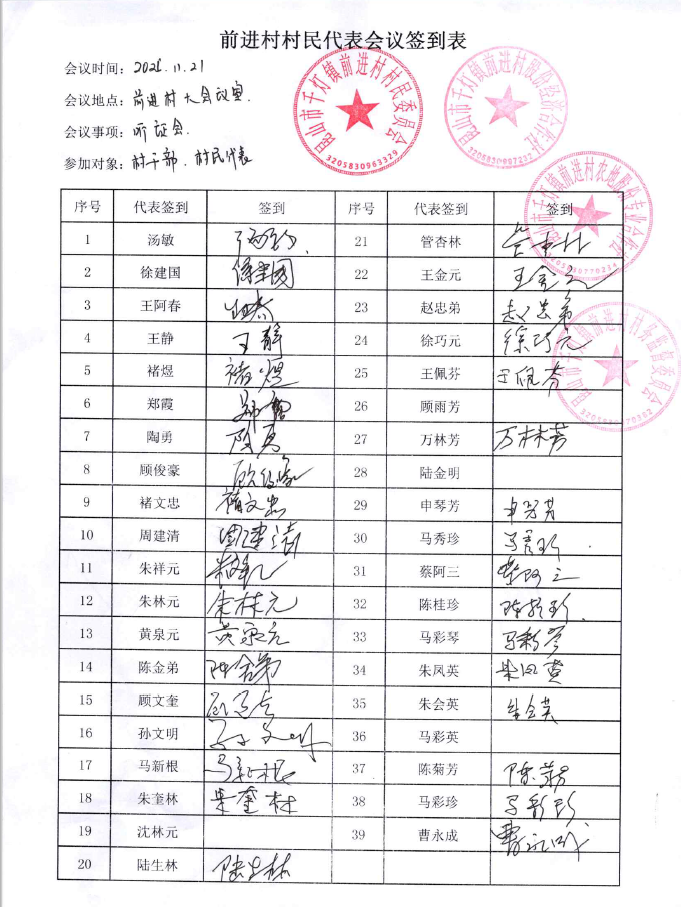 前进村村民代表会议签到表
会议时间：2025.11.21
会议地点：前进村大会议室.
会议事项：听证会.
参加对象：村干部、村民代表
昆山市千灯镇前进村村民委员会
3205830963329
昆山市千灯镇前进村股份经济合作社
昆山市千灯镇前进村农地股份专业合作社
昆山市千灯镇前进村村务监督委员会
序号 代表签到 签到 序号 代表签到 签到
1 汤敏 汤敏 21 管杏林 管杏林
2 徐建国 徐建国 22 王金元 王金元
3 王阿春 23 赵忠弟 赵忠弟
4 王静 王静 24 徐巧元 徐巧元
5 褚煜 褚煜 25 王佩芬 王佩芬
6 郑霞 郑霞 26 顾雨芳
7 陶勇 陶勇 27 万林芳 万林芳
8 顾俊豪 顾俊豪 28 陆金明
9 褚文忠 褚文忠 29 申琴芳 申琴芳
10 周建清 周建清 30 马秀珍 马秀珍
11 朱祥元 31 蔡阿三 蔡阿三
12 朱林元 朱林元 32 陈桂珍 陈桂珍
13 黄泉元 黄泉元 33 马彩琴 马彩琴
14 陈金弟 陈金弟 34 朱凤英 朱凤英
15 顾文奎 顾文奎 35 朱会英 朱会英
16 孙文明 孙文明 36 马彩英
17 马新根 马新根 37 陈菊芳 陈菊芳
18 朱奎林 朱奎林 38 马彩珍 马彩珍
19 沈林元 39 曹永成 曹永成
20 陆生林 陆生林